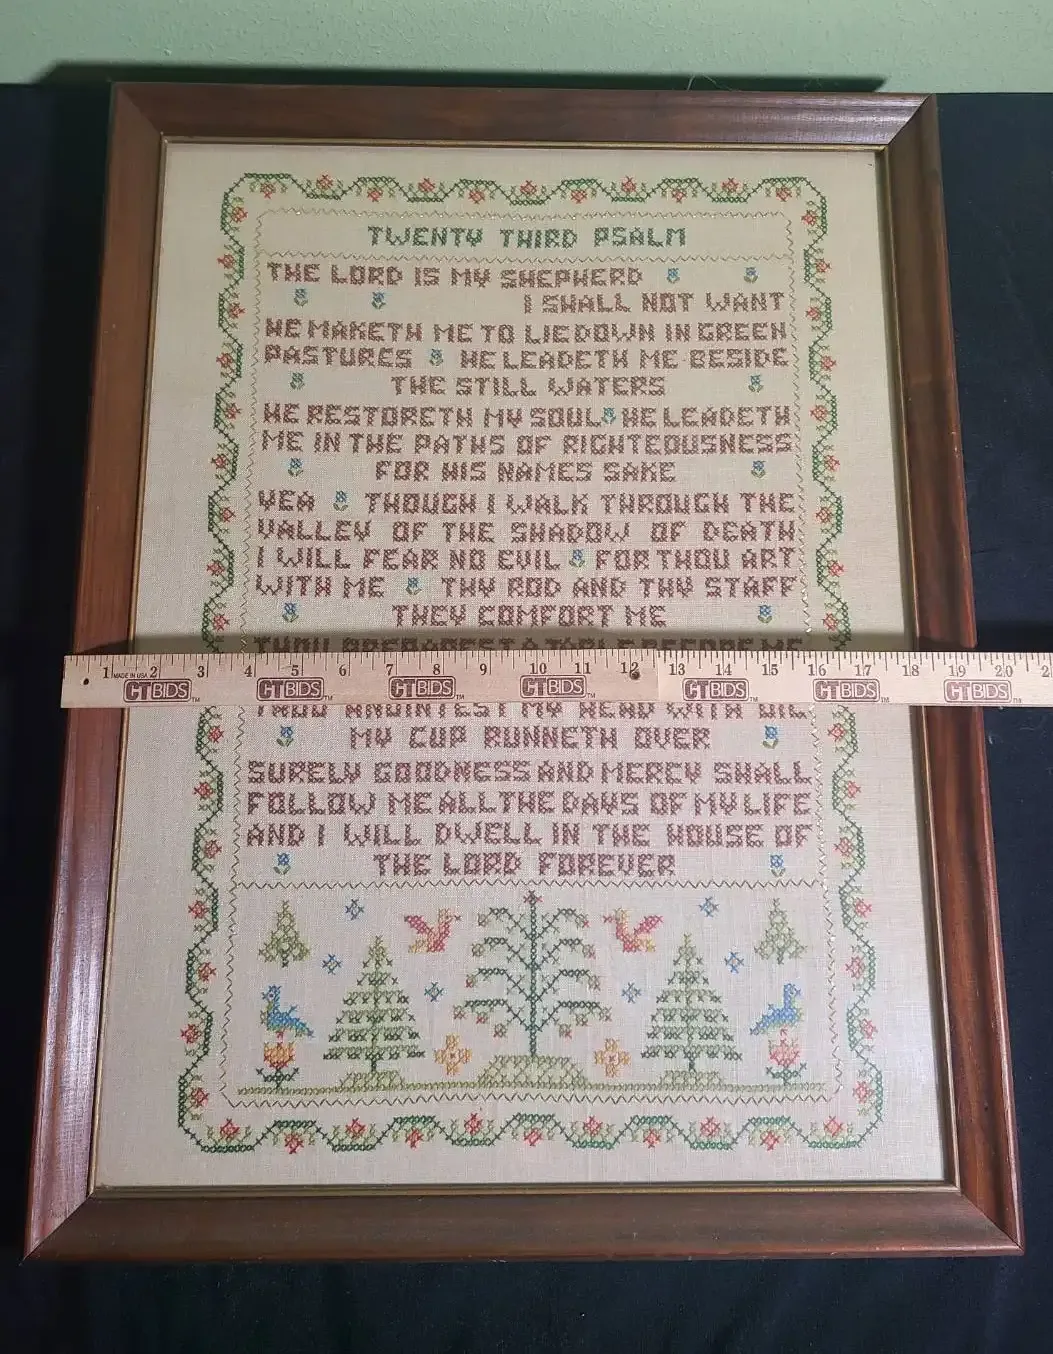 TWENTY THIRD PSALM
THE LORD IS MY SHEPHERD
I SHALL NOT WANT
HE MAKETH ME TO LIE DOWN IN GREEN
PASTURES HE LEADETH ME BESIDE
THE STILL WATERS
HE RESTORETH MY SOUL HE LEADETH
ME IN THE PATHS OF RIGHTEOUSNESS
FOR HIS NAMES SAKE
YEA THOUGH I WALK THROUGH THE
VALLEY OF THE SHADOW OF DEATH
I WILL FEAR NO EVIL FOR THOU ART
WITH ME THY ROD AND THY STAFF
THEY COMFORT ME
THOU PREPAREST A TABLE BEFORE ME
1 MADE IN USA 2 3 4 5 6 7 8 9 10 11 12 13 14 15 16 17 18 19 20
CTBIDS™ CTBIDS™ CTBIDS™ CTBIDS™ CTBIDS™ CTBIDS™ CTBIDS™
THOU ANOINTEST MY HEAD WITH OIL
MY CUP RUNNETH OVER
SURELY GOODNESS AND MERCY SHALL
FOLLOW ME ALL THE DAYS OF MY LIFE
AND I WILL DWELL IN THE HOUSE OF
THE LORD FOREVER